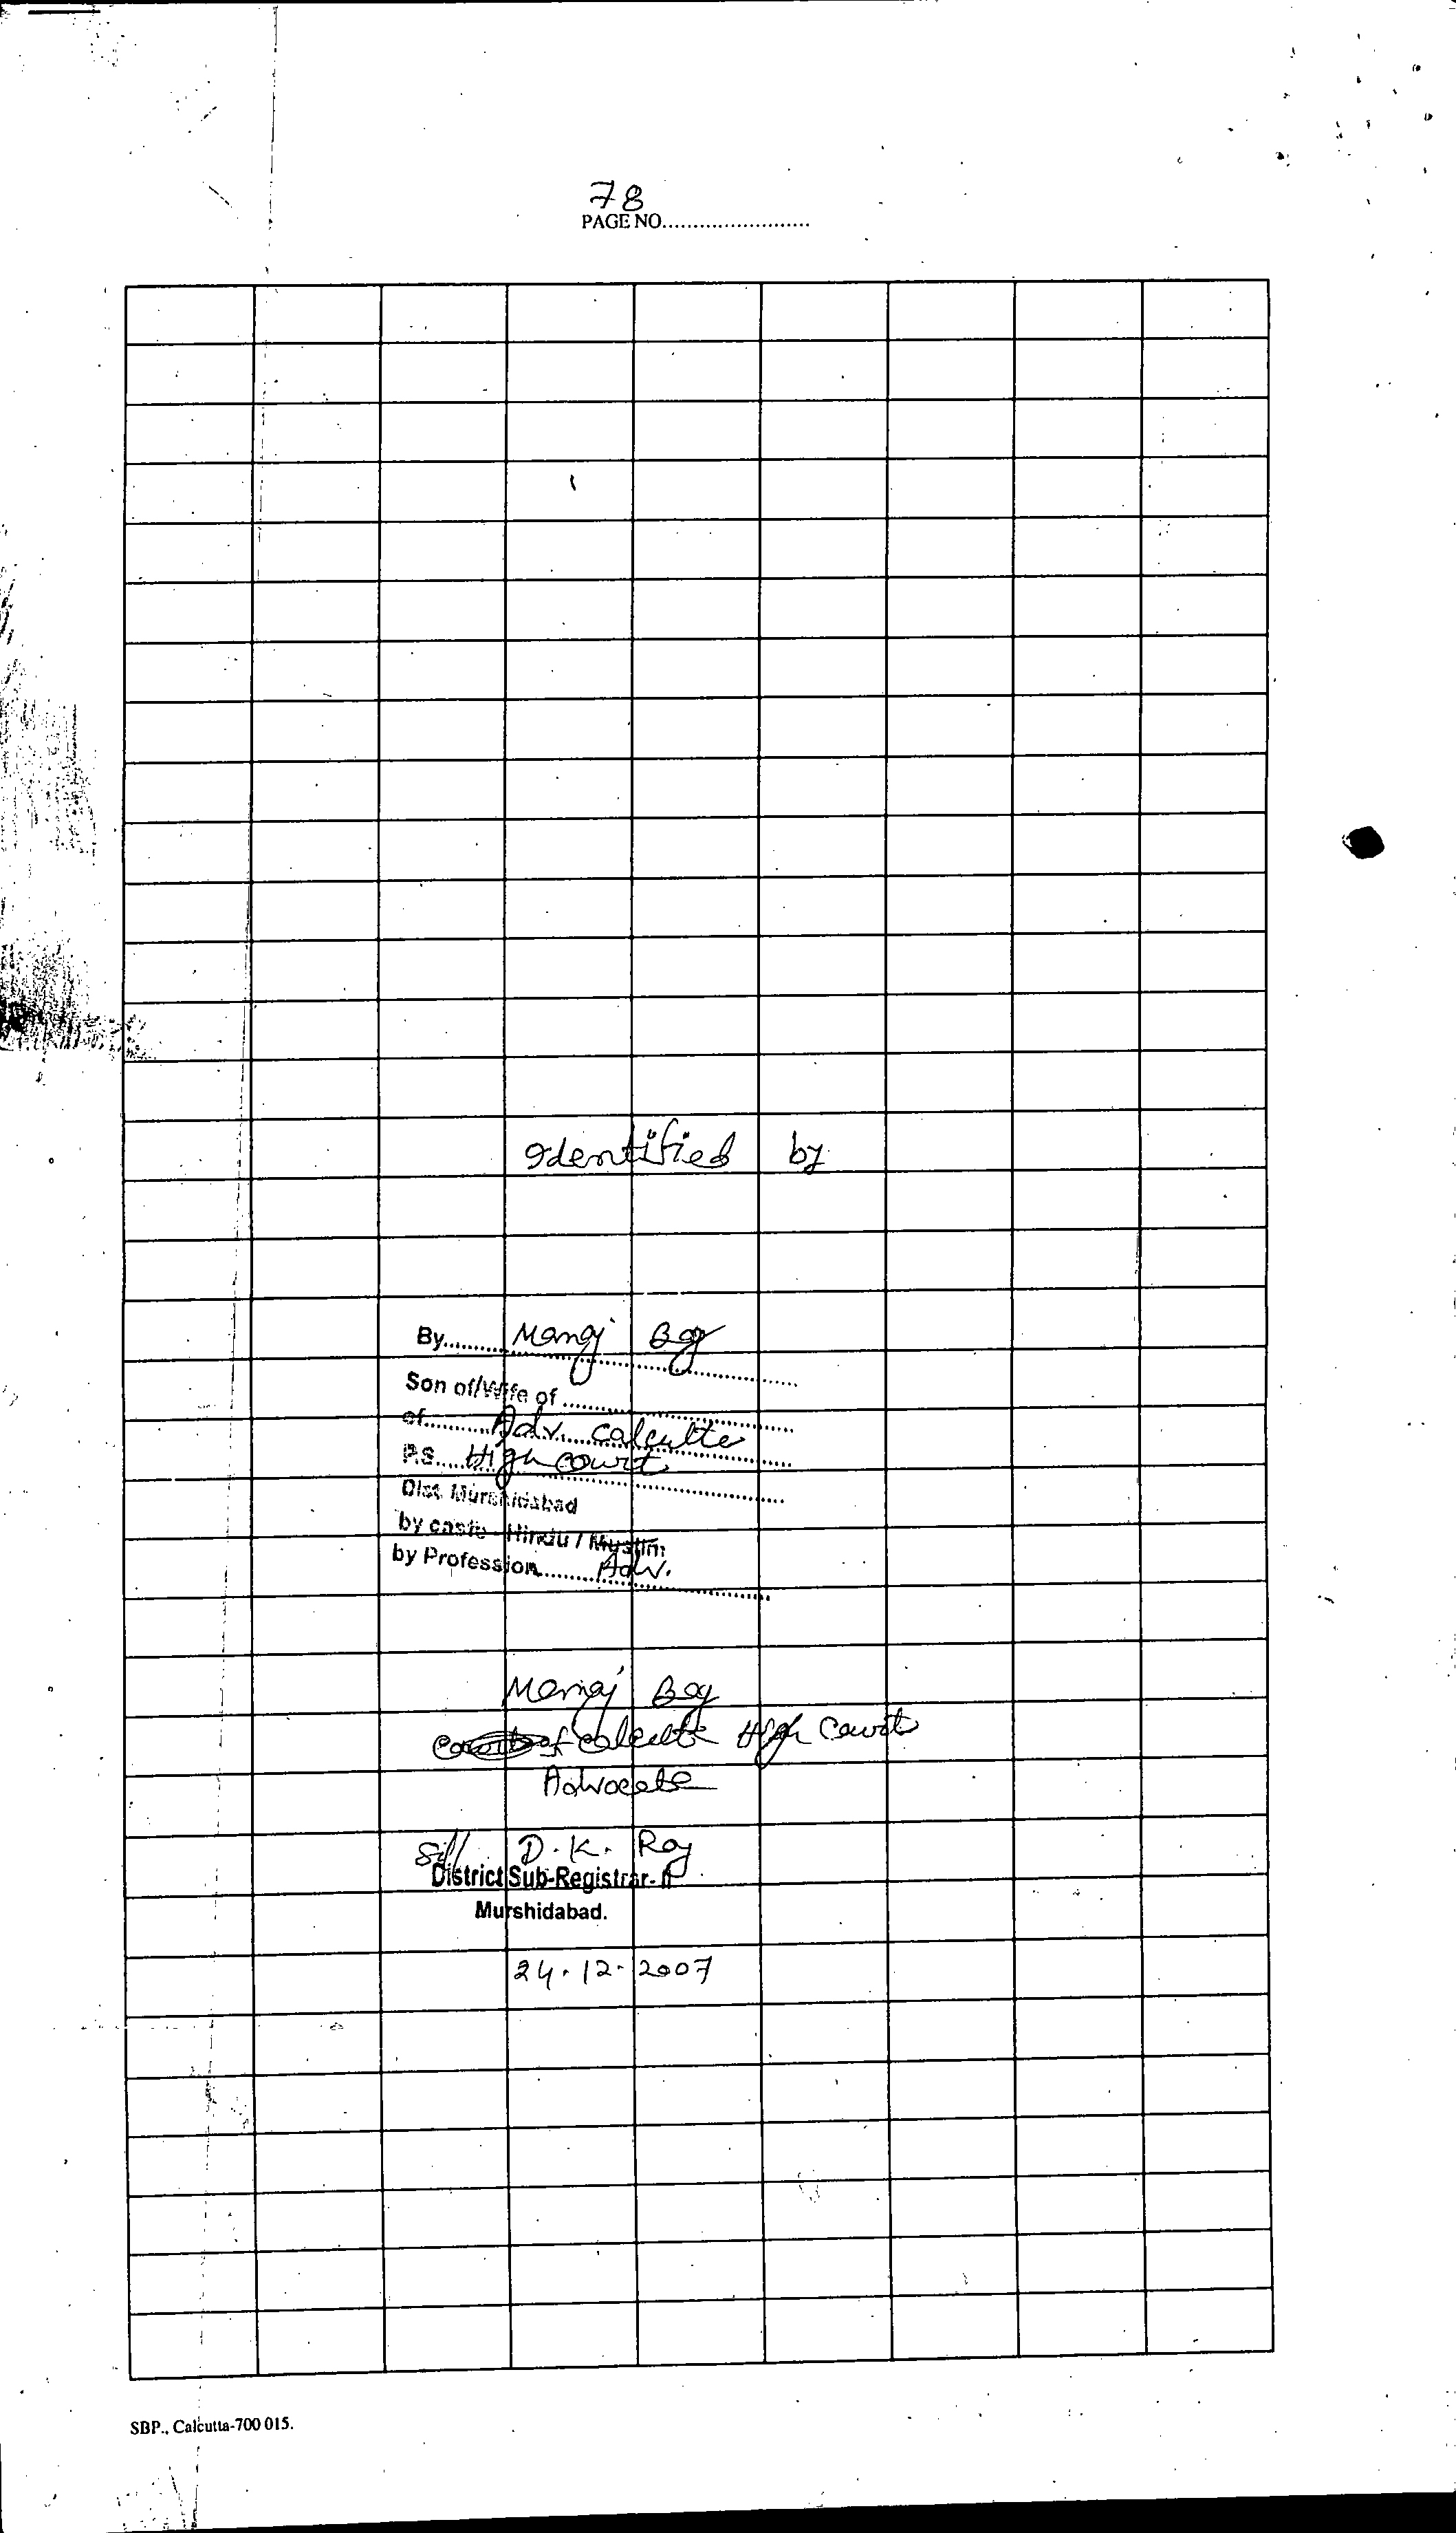 78
PAGE NO........................
Identified by
By.......... Manoj Bag
Son of/Wife of ....................
of.......... Adv. Calcutta
P.S..... High Court
Dist. Murshidabad
by caste - Hindu / Muslim
by Profession.......... Adv.
Manoj Bag
of Calcutta High Court
Advocate
Sd/ D. K. Roy
District Sub-Registrar-II
Murshidabad.
24.12.2007
SBP., Calcutta-700 015.